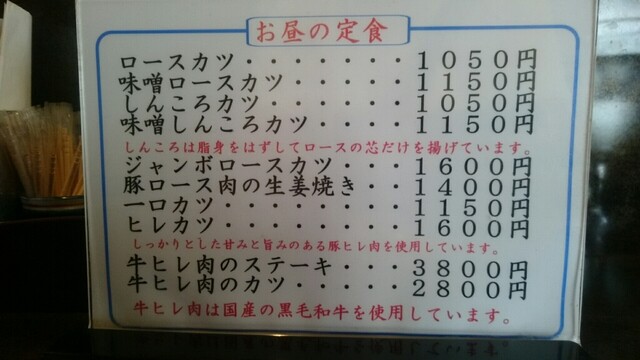 お昼の定食
ロースカツ・・・・・・・1050円
味噌ロースカツ・・・・・1150円
しんころカツ・・・・・・1050円
味噌しんころカツ・・・・1150円
しんころは脂身をはずしてロースの芯だけを揚げています。
ジャンボロースカツ・・・1600円
豚ロース肉の生姜焼き・・1400円
一口カツ・・・・・・・・1150円
ヒレカツ・・・・・・・・1600円
しっかりとした甘みと旨みのある豚ヒレ肉を使用しています。
牛ヒレ肉のステーキ・・・3800円
牛ヒレ肉のカツ・・・・・2800円
牛ヒレ肉は国産の黒毛和牛を使用しています。